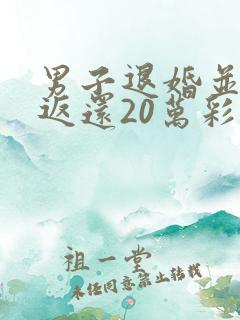 男子退婚並
返還20萬彩
祖一堂
未經同意禁止轉載